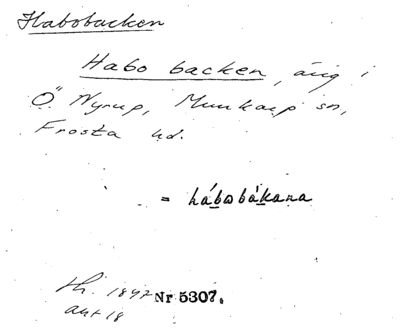 Habobacken
Habo backen, äng i
Ö. Nyrup, Munkarp sn,
Frosta hd.
= hábωbákana
th. 1847 Nr 5307.
akt 18